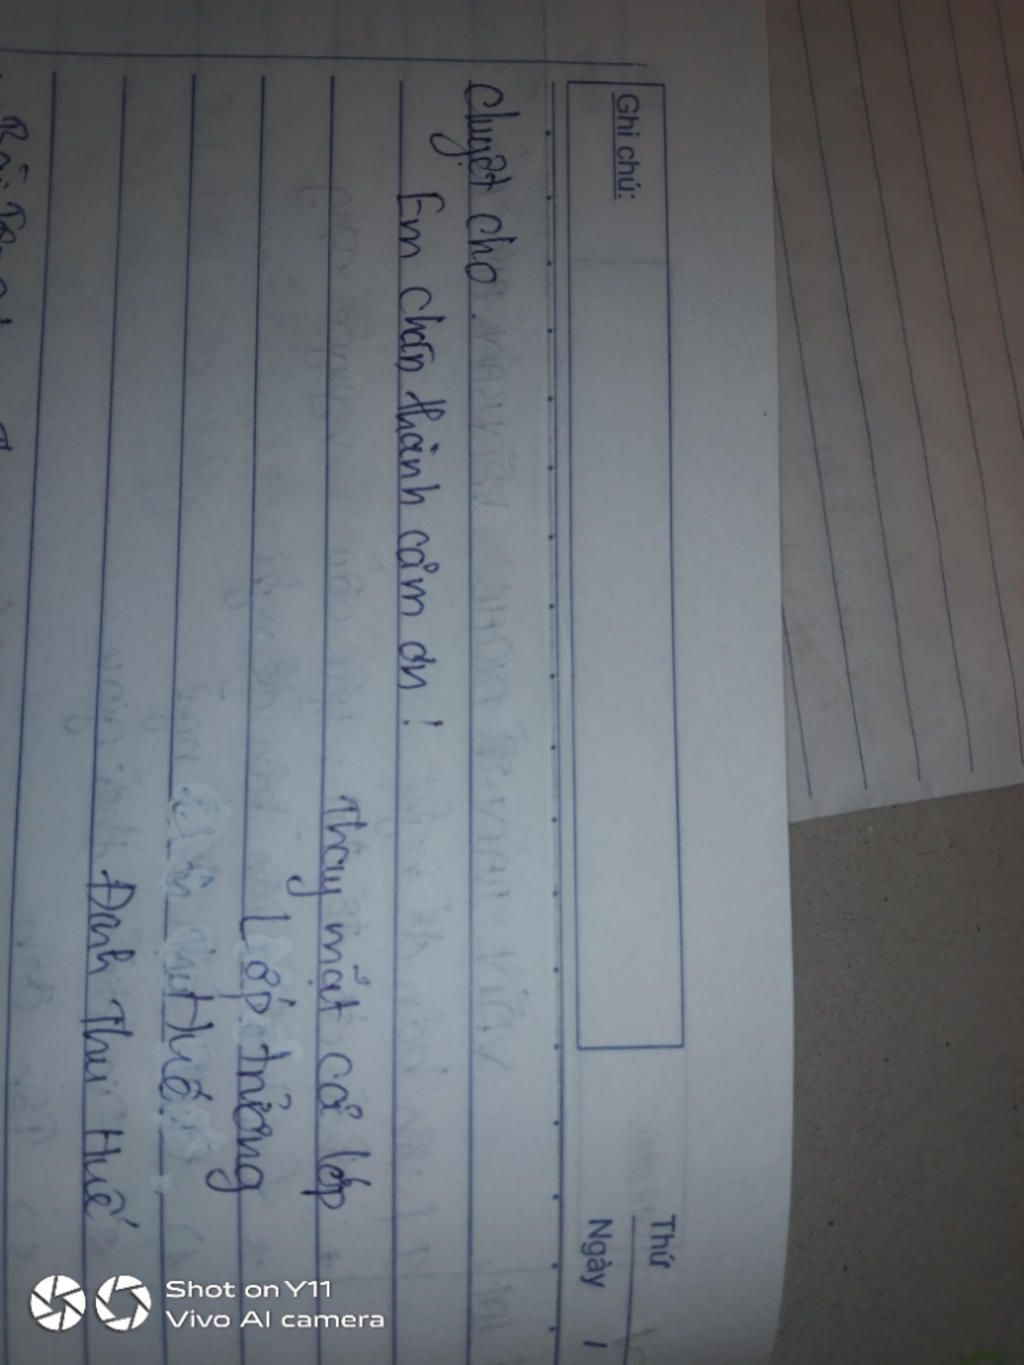 Ghi chú:
Thứ
Ngày
chuyệt cho.
Em chân thành cảm ơn!
Thay mặt cả lớp
Lớp trưởng
Huế
Đinh Thu Huế
Shot on Y11
Vivo AI camera